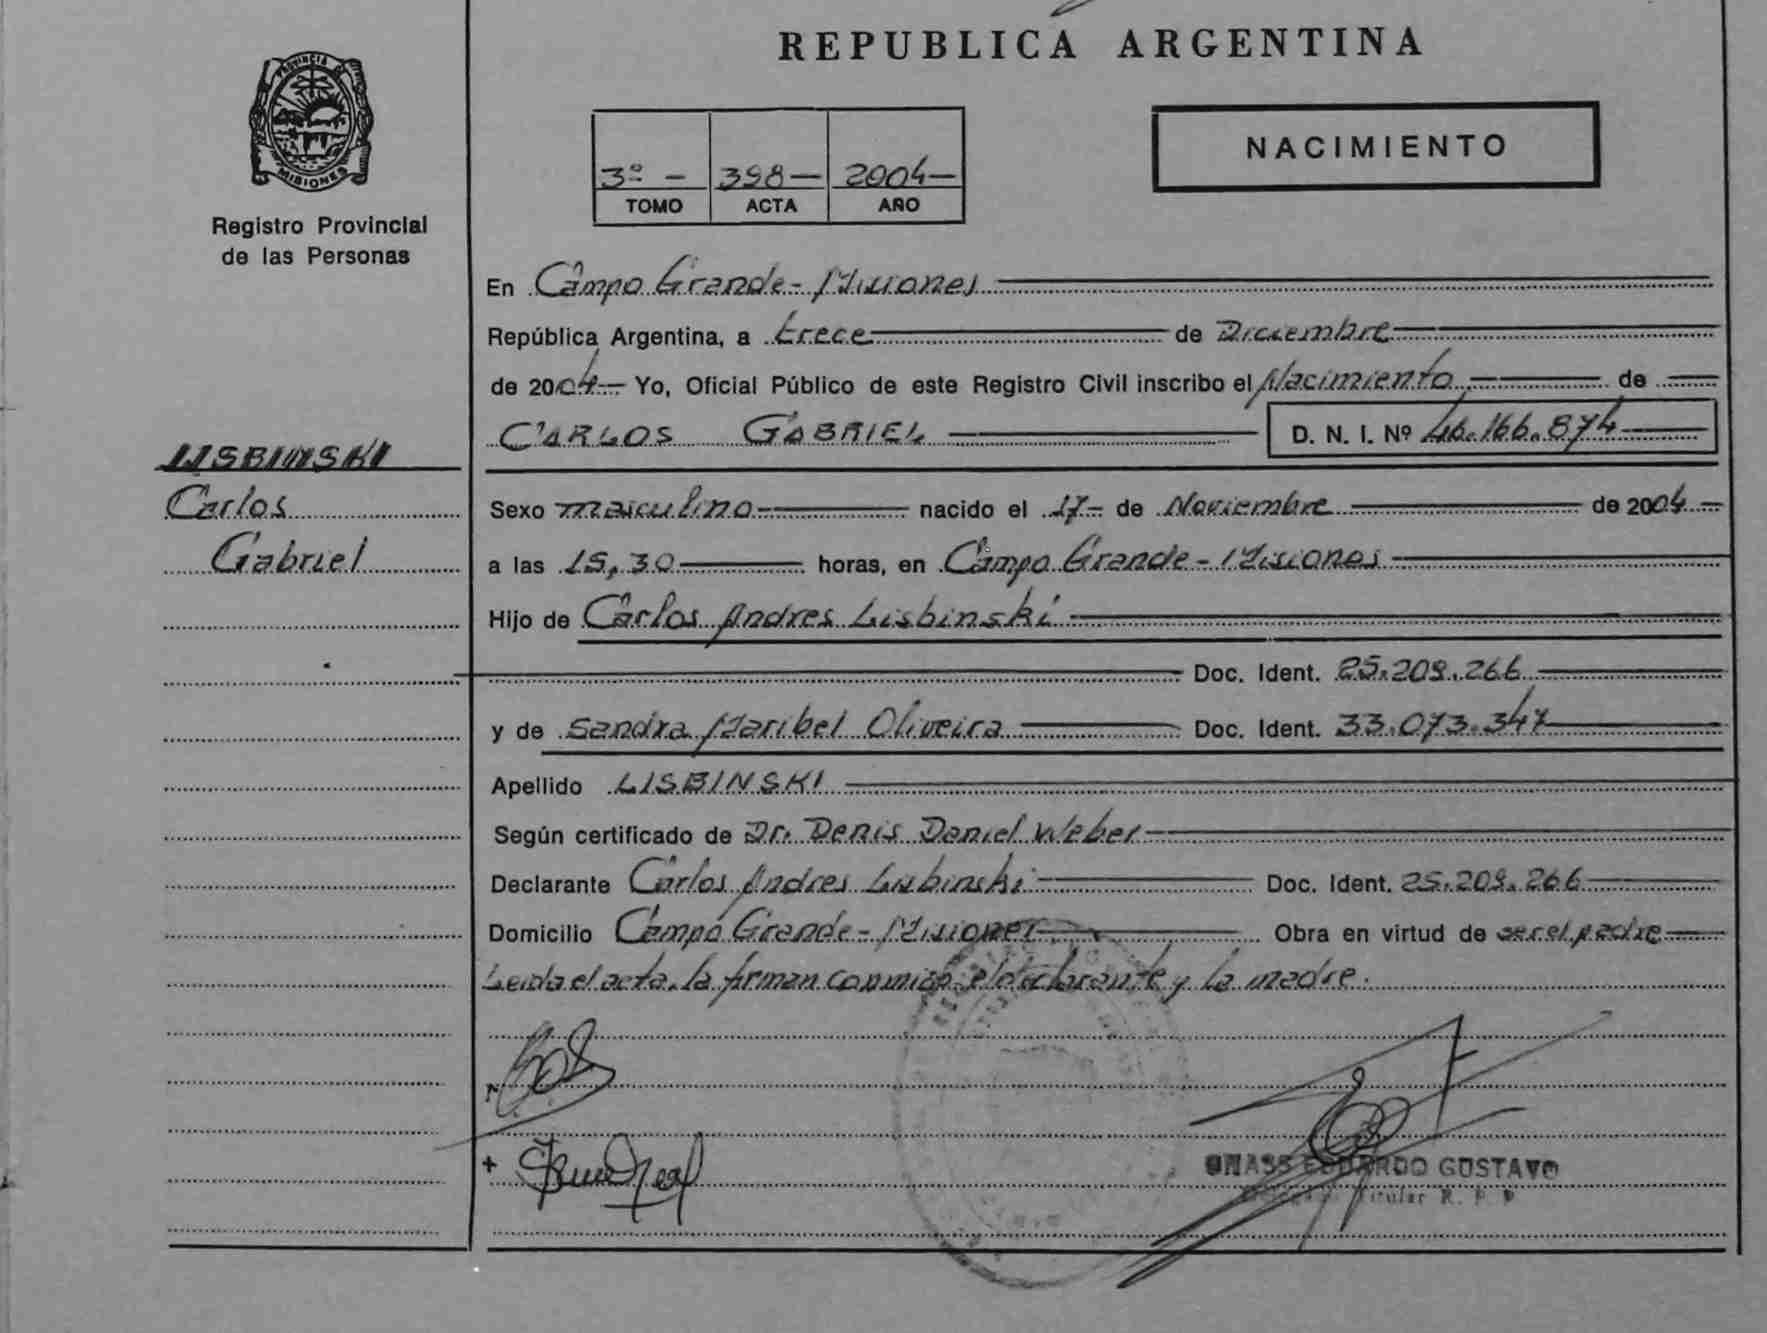 REPUBLICA ARGENTINA
PROVINCIA DE
MISIONES
Registro Provincial
de las Personas
3º - 398 - 2004 -
TOMO ACTA AÑO
NACIMIENTO
En Campo Grande - Misiones
República Argentina, a trece de Diciembre
de 2004 - Yo, Oficial Público de este Registro Civil inscribo el Nacimiento de
CARLOS GABRIEL D. N. I. Nº 46.166.874
LISBINSKI
Carlos
Gabriel
Sexo masculino nacido el 17 - de Noviembre de 2004 -
a las 15,30 horas, en Campo Grande - Misiones
Hijo de Carlos Andres Lisbinski
Doc. Ident. 25.209.266
y de Sandra Maribel Oliveira Doc. Ident. 33.073.347
Apellido LISBINSKI
Según certificado de Dr. Denis Daniel Weber
Declarante Carlos Andres Lisbinski Doc. Ident. 25.209.266
Domicilio Campo Grande - Misiones Obra en virtud de ser el padre
Leida el acta, la firman conmigo el declarante y la madre.
EDUARDO GUSTAVO
Titular R. P. P